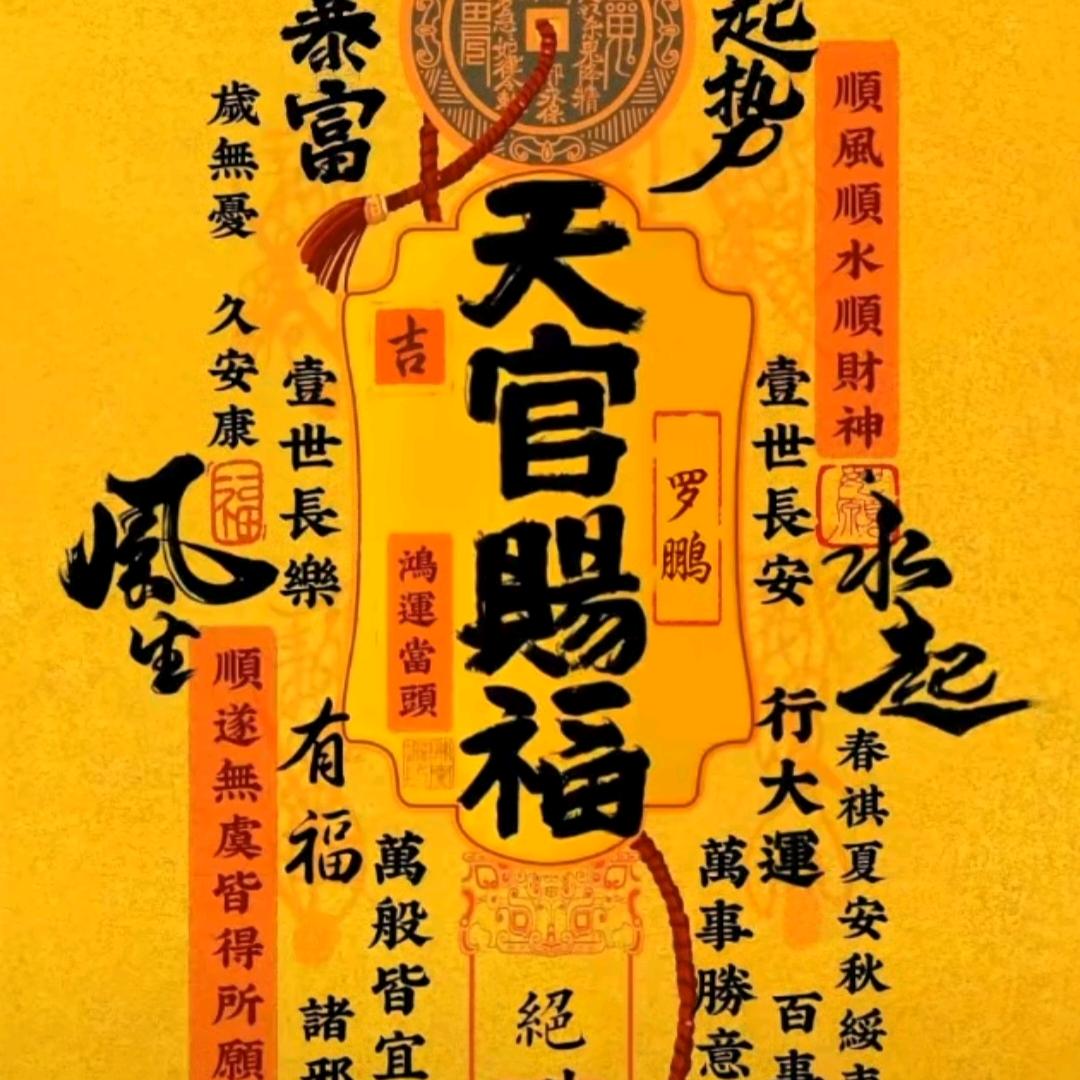 起勢
順風順水順財神
永起
壹世長安
行大運
春祺夏安秋綏
百事
萬事勝意
天官賜福
罗鹏
吉
鴻運當頭
絕
暴富
歲無憂 久安康
福
壹世長樂
風生
有福
萬般皆宜
諸邪
順遂無虞皆得所願